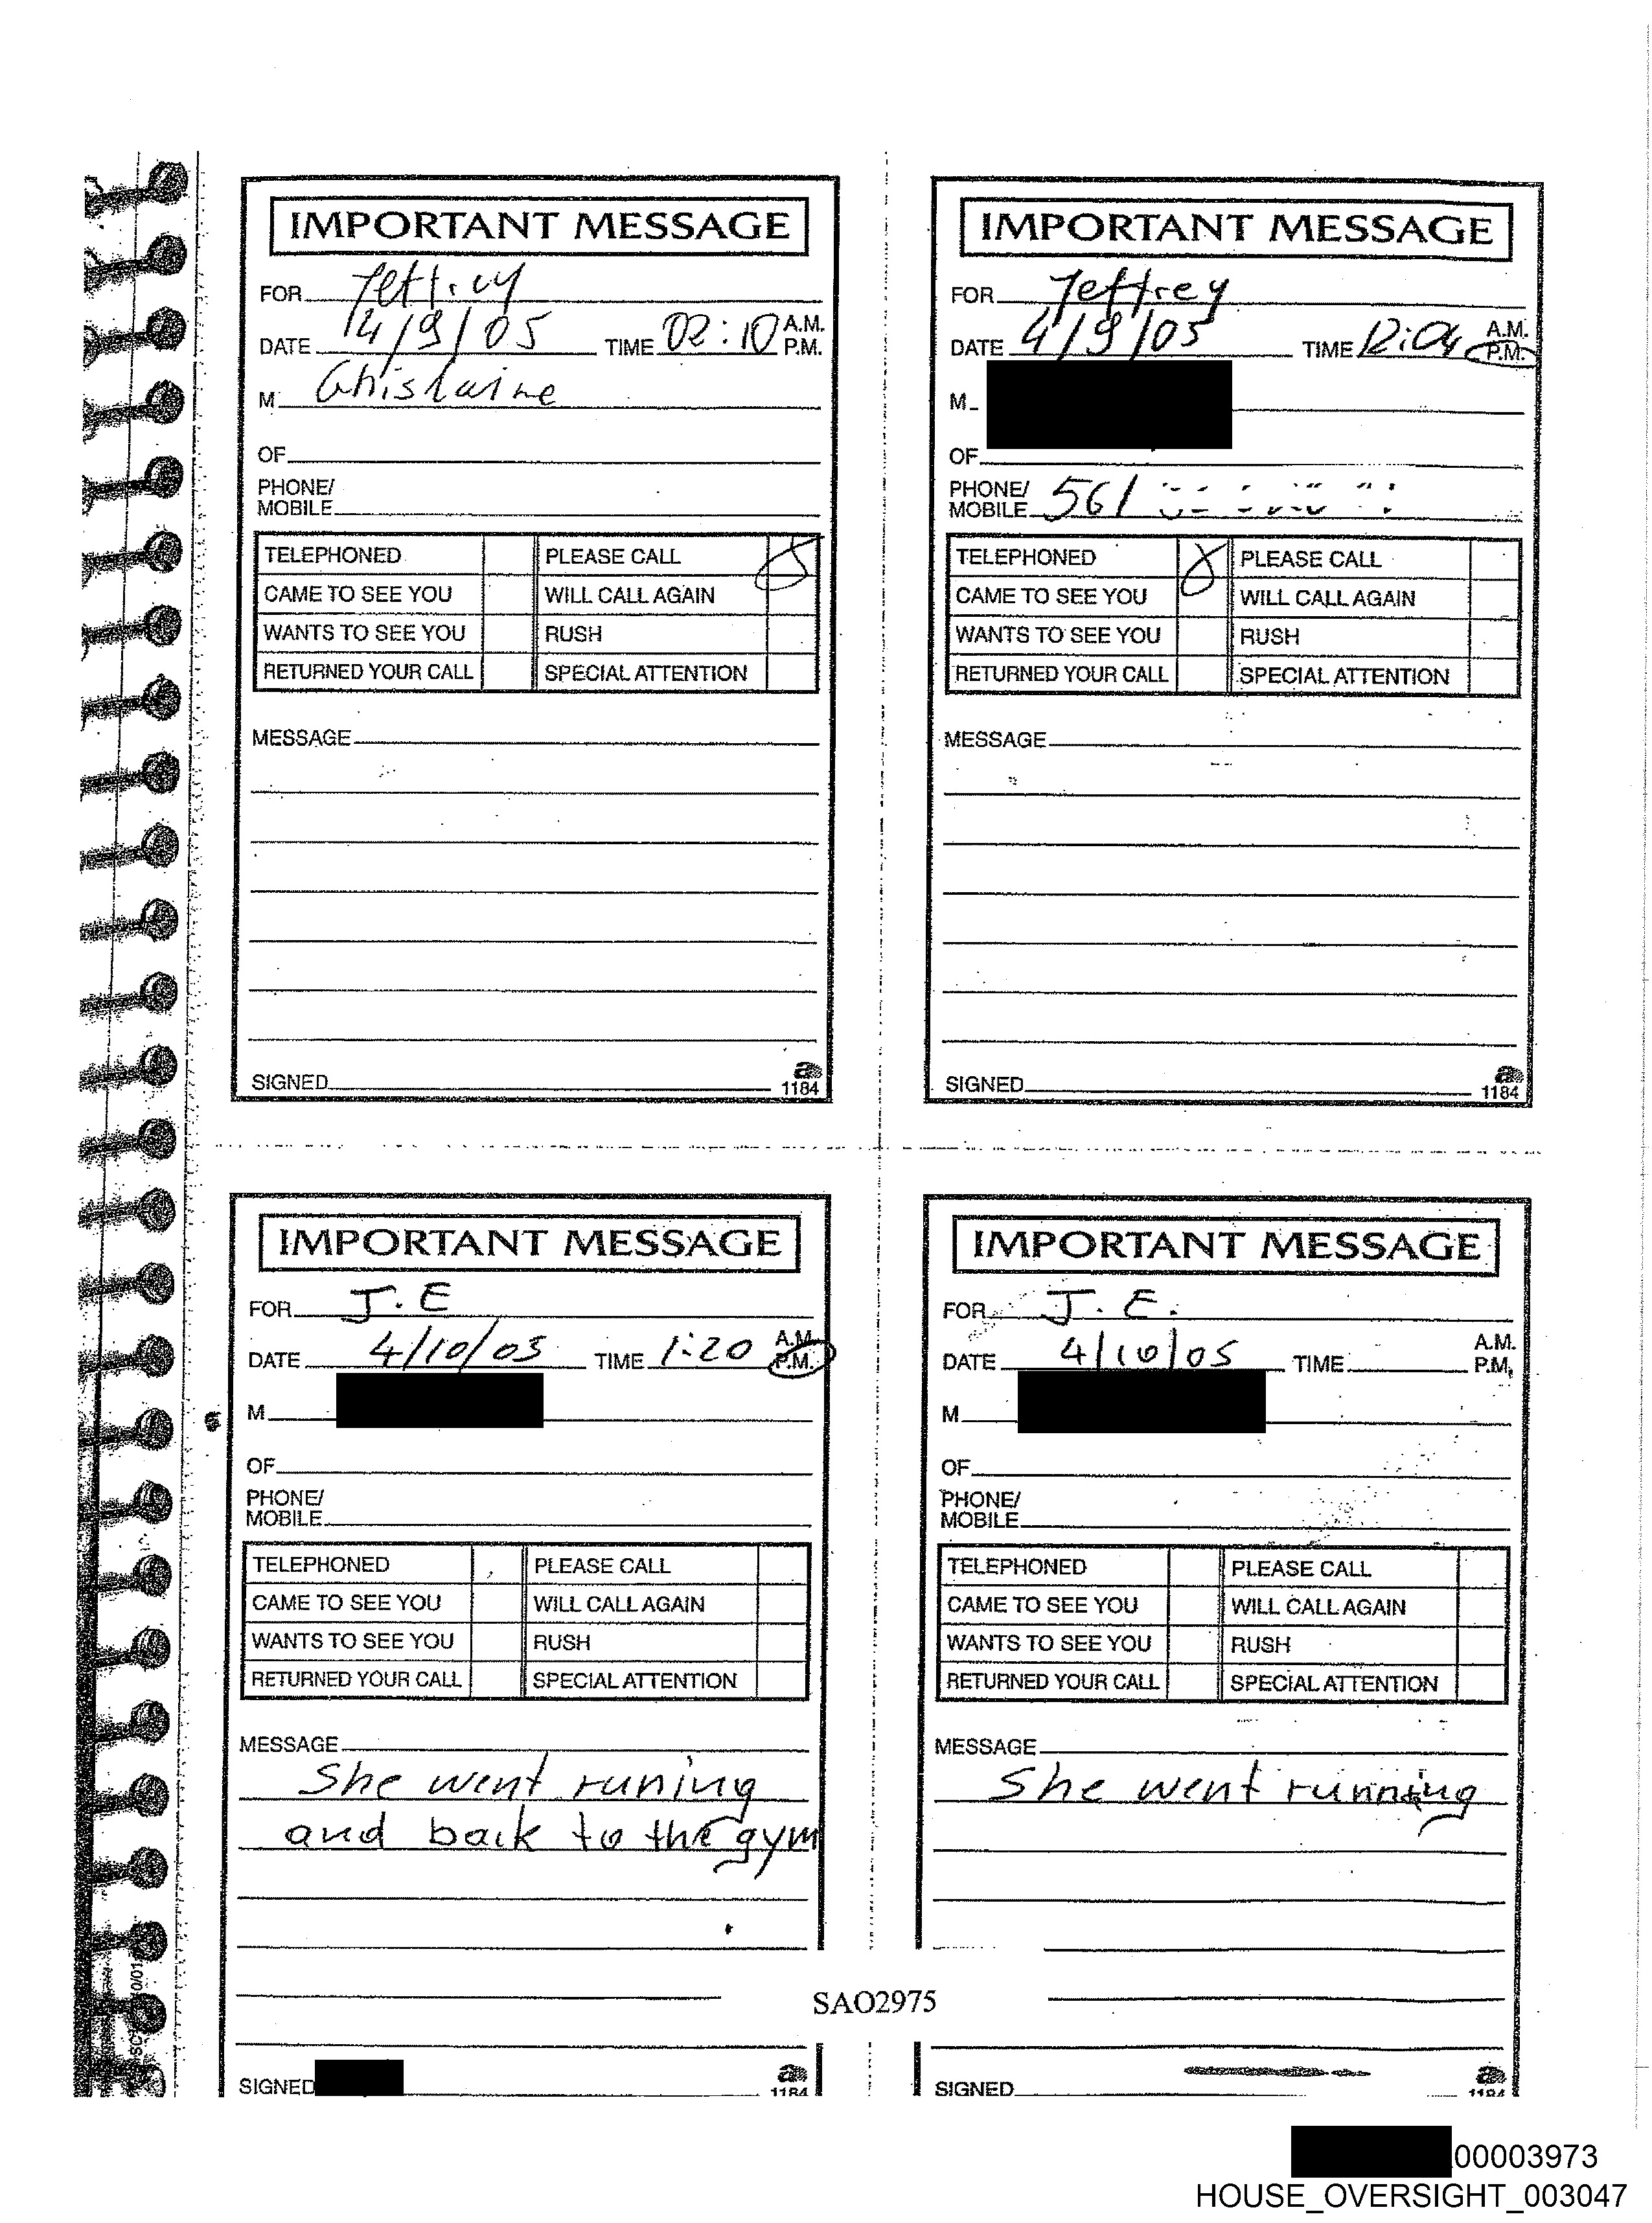 IMPORTANT MESSAGE
FOR Jeffrey
DATE 4/9/05 TIME 02:10 A.M. P.M.
M Ghislaine
OF
PHONE/
MOBILE
TELEPHONED PLEASE CALL
CAME TO SEE YOU WILL CALL AGAIN
WANTS TO SEE YOU RUSH
RETURNED YOUR CALL SPECIAL ATTENTION
MESSAGE
SIGNED
1184
IMPORTANT MESSAGE
FOR Jeffrey
DATE 4/9/05 TIME 12:04 A.M. P.M.
M
OF
PHONE/
MOBILE 561
TELEPHONED PLEASE CALL
CAME TO SEE YOU WILL CALL AGAIN
WANTS TO SEE YOU RUSH
RETURNED YOUR CALL SPECIAL ATTENTION
MESSAGE
SIGNED
1184
IMPORTANT MESSAGE
FOR J. E
DATE 4/10/05 TIME 1:20 A.M. P.M.
M
OF
PHONE/
MOBILE
TELEPHONED PLEASE CALL
CAME TO SEE YOU WILL CALL AGAIN
WANTS TO SEE YOU RUSH
RETURNED YOUR CALL SPECIAL ATTENTION
MESSAGE
She went runing
and back to the gym
SIGNED
1184
IMPORTANT MESSAGE
FOR J. E.
DATE 4/10/05 TIME A.M. P.M.
M
OF
PHONE/
MOBILE
TELEPHONED PLEASE CALL
CAME TO SEE YOU WILL CALL AGAIN
WANTS TO SEE YOU RUSH
RETURNED YOUR CALL SPECIAL ATTENTION
MESSAGE
She went running
SIGNED
1184
SAO2975
00003973
HOUSE_OVERSIGHT_003047